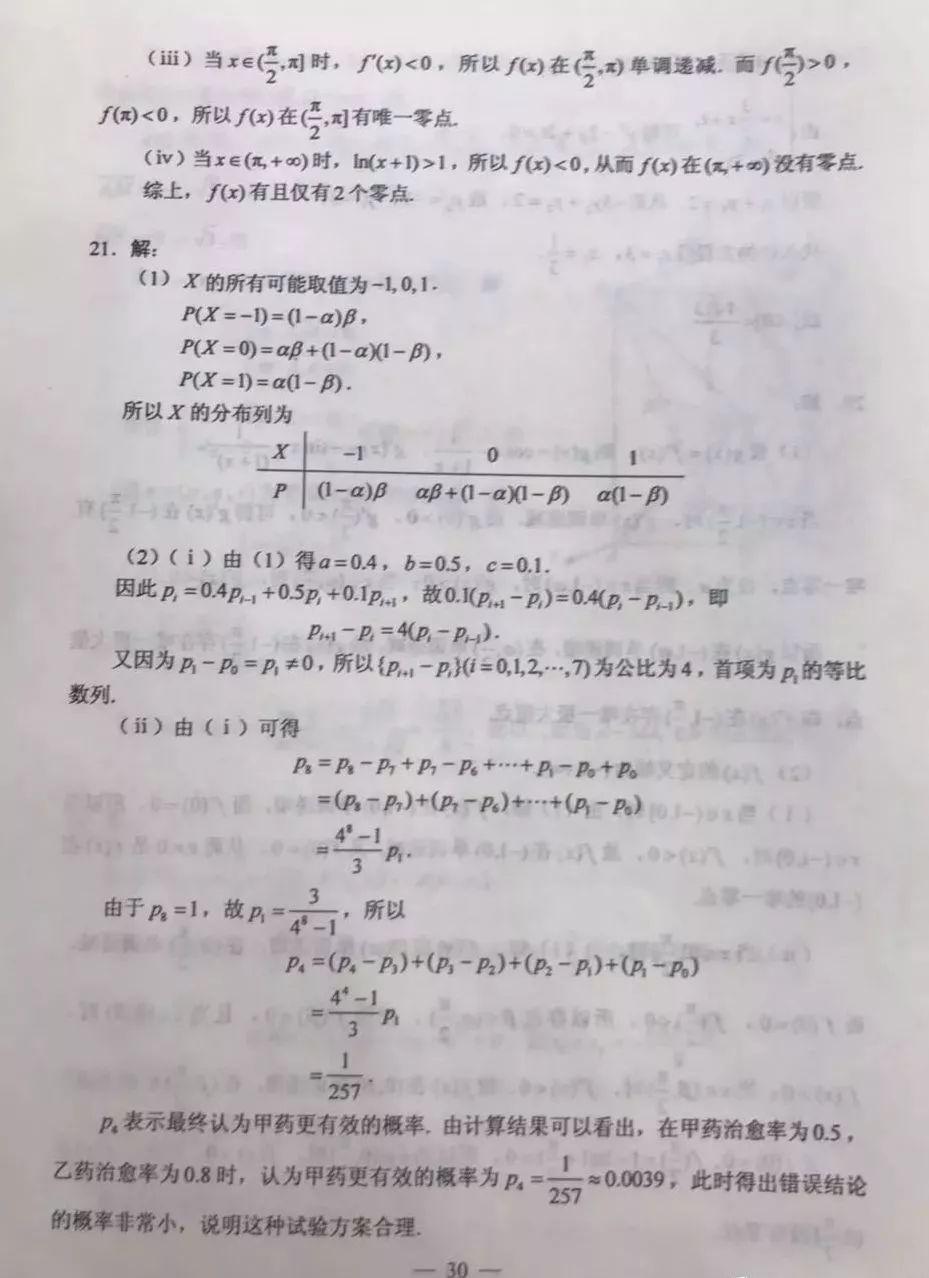 (iii) 当x∈(π/2,π]时，f′(x)<0，所以f(x)在(π/2,π)单调递减. 而f(π/2)>0，
f(π)<0，所以f(x)在(π/2,π]有唯一零点.
(iv) 当x∈(π,+∞)时，ln(x+1)>1，所以f(x)<0,从而f(x)在(π,+∞)没有零点.
综上，f(x)有且仅有2个零点.
21. 解：
(1) X的所有可能取值为-1,0,1.
P(X=-1)=(1-α)β，
P(X=0)=αβ+(1-α)(1-β)，
P(X=1)=α(1-β).
所以X的分布列为
X -1 0 1
P (1-α)β αβ+(1-α)(1-β) α(1-β)
(2) (i) 由 (1) 得a=0.4，b=0.5，c=0.1.
因此p_i=0.4p_{i-1}+0.5p_i+0.1p_{i+1}，故0.1(p_{i+1}-p_i)=0.4(p_i-p_{i-1})，即
p_{i+1}-p_i=4(p_i-p_{i-1}).
又因为p₁-p₀=p₁≠0，所以{p_{i+1}-p_i}(i=0,1,2,⋯,7)为公比为4，首项为p₁的等比
数列.
(ii) 由 (i) 可得
p₈=p₈-p₇+p₇-p₆+⋯+p₁-p₀+p₀
=(p₈-p₇)+(p₇-p₆)+⋯+(p₁-p₀)
=(4⁸-1)/3 p₁.
由于p₈=1，故p₁=3/(4⁸-1)，所以
p₄=(p₄-p₃)+(p₃-p₂)+(p₂-p₁)+(p₁-p₀)
=(4⁴-1)/3 p₁
=1/257.
p₄表示最终认为甲药更有效的概率. 由计算结果可以看出，在甲药治愈率为0.5，
乙药治愈率为0.8时，认为甲药更有效的概率为p₄=1/257≈0.0039，此时得出错误结论
的概率非常小，说明这种试验方案合理.
— 30 —